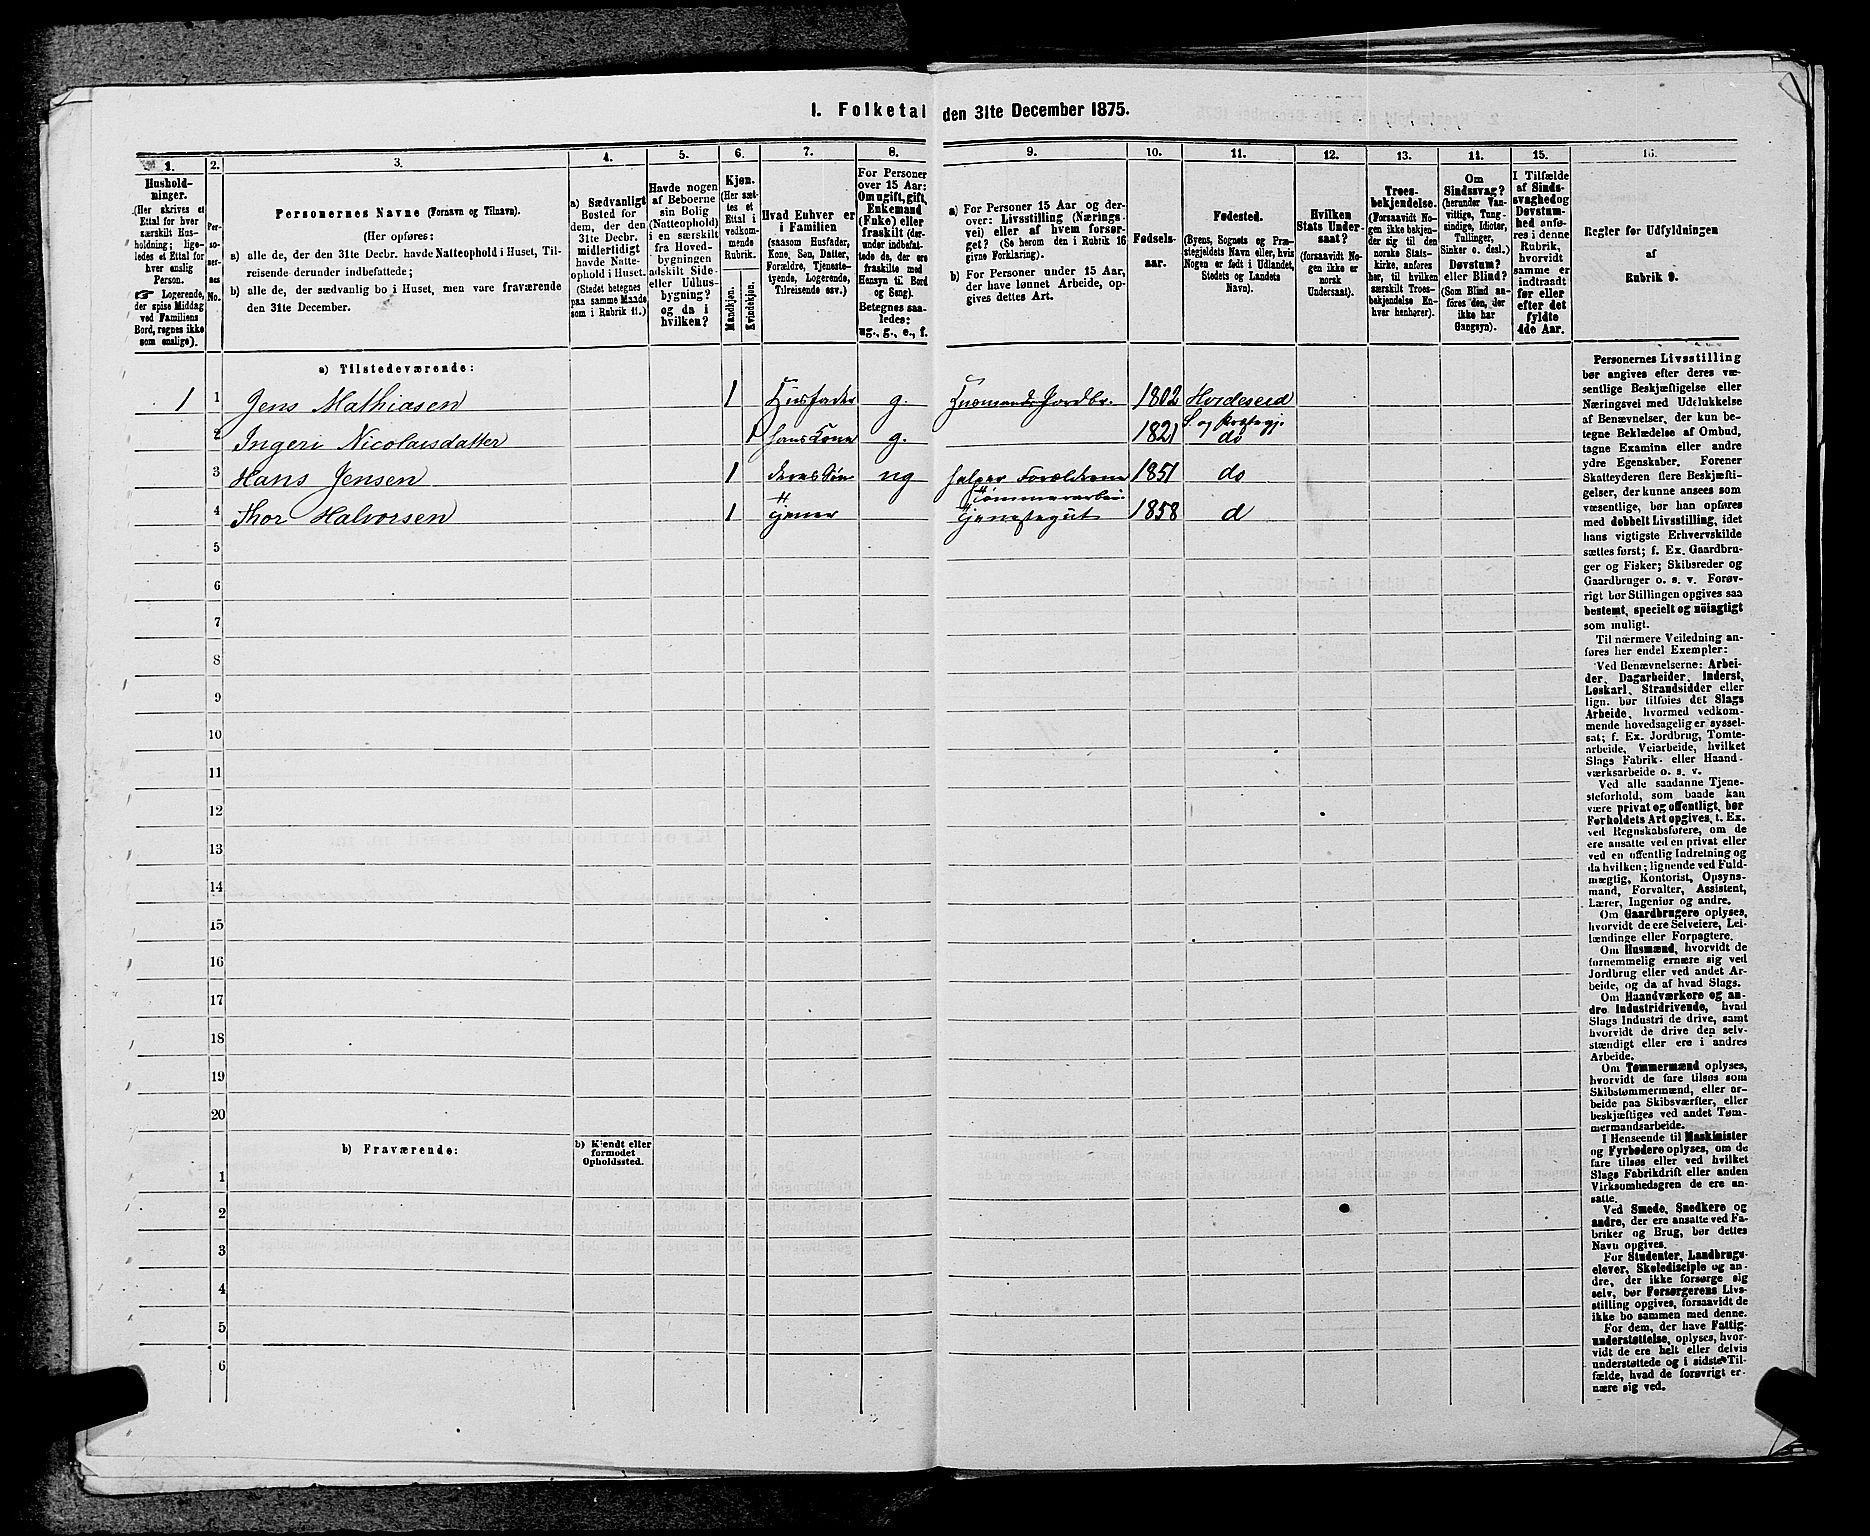 1. Folketal den 31te December 1875.
1.
2.
3.
4.
5.
6.
7.
8.
9.
10.
11.
12.
13.
14.
15.
16.
Hushold-
ninger.
(Her skrives et
Ettal for hver
særskilt Hus-
holdning; lige-
ledes et Ettal for
hver enslig
Person.
☞ Logerende,
der spise Middag
ved Familiens
Bord, regnes ikke
som enslige).
Per-
so-
ner-
nes
No.
Personernes Navne (Fornavn og Tilnavn).
(Her opføres:
a) alle de, der den 31te Decbr. havde Natteophold i Huset, Til-
reisende derunder indbefattede;
b) alle de, der sædvanlig bo i Huset, men vare fraværende
den 31te December.
a) Sædvanligt
Bosted for
dem, der den
31te Decbr.
midlertidigt
havde Natte-
ophold i Huset.
(Stedet betegnes
paa samme Maade
som i Rubrik 11.)
Havde nogen
af Beboerne
sin Bolig
(Natteophold)
i en særskilt
fra Hoved-
bygningen
adskilt Side-
eller Udhus-
bygning?
og da i
hvilken?
Kjøn.
(Her sæt-
tes et
Ettal i
vedkom-
mende
Rubrik.
Mandkjøn.
Kvindekjøn.
Hvad Enhver er
i Familien
(saasom Husfader,
Kone, Søn, Datter,
Forældre, Tjeneste-
tyende, Logerende,
Tilreisende osv.)
For Personer
over 15 Aar:
Om ugift, gift,
Enkemand
(Enke) eller
fraskilt (der-
under indbefat-
tede de, der ere
fraskilte med
Hensyn til Bord
og Seng).
Betegnes saa-
ledes:
ug., g., e., f.
a) For Personer 15 Aar og der-
over: Livsstilling (Nærings-
vei) eller af hvem forsør-
get? (Se herom den i Rubrik 16
givne Forklaring).
b) For Personer under 15 Aar,
der have lønnet Arbeide, op-
gives dettes Art.
Fødsels-
aar.
Fødested.
(Byens, Sognets og Præ-
stegjeldets Navn eller, hvis
Nogen er født i Udlandet,
Stedets og Landets
Navn).
Hvilken
Stats Under-
saat?
(forsaavidt No-
gen ikke er
norsk
Undersaat).
Troes-
bekjendelse.
(Forsaavidt No-
gen ikke bekjen-
der sig til den
norske Stats-
kirke, anføres
her, til hvilken
særskilt Troes-
bekjendelse En-
hver henhører).
Om
Sindssvag?
(herunder Van-
vittige, Tung-
sindige, Idioter,
Tullinger,
Sinker o. desl.)
Døvstum?
eller Blind?
(Som Blind an-
føres den, der
ikke har
Gangsyn).
I Tilfælde
af Sinds-
svaghed og
Døvstum-
hed anfø-
res i denne
Rubrik,
hvorvidt
samme er
indtraadt
før eller
efter det
fyldte
4de Aar.
Regler for Udfyldningen
af
Rubrik 9.
a) Tilstedeværende:
1 1 Jens Mathiasen 1 Husfader g. Husmand Jordbr. 1802 Hvideseid
S. og Præstegj.
2 Ingeri Nicolaisdatter 1 hans Kone g. 1821 do
3 Hans Jensen 1 deres Søn ug hjelper Forældrene 1851 do
Tømmerarbei
4 Thor Halvorsen 1 tjener tjenestegut 1858 d
5
6
7
8
9
10
11
12
13
14
15
16
17
18
19
20
b) Fraværende:
b) Kjendt eller
formodet
Opholdssted.
1
2
3
4
5
6
Personernes Livsstilling
bør angives efter deres væ-
sentlige Beskjæftigelse eller
Næringsvei med Udelukkelse
af Benævnelser, der kun be-
tegne Beklædelse af Ombud,
tagne Examina eller andre
ydre Egenskaber. Forener
Skatteyderen flere Beskjæfti-
gelser, der kunne ansees som
væsentlige, bør han opføres
med dobbelt Livsstilling, idet
hans vigtigste Erhvervskilde
sættes først; f. Ex. Gaardbru-
ger og Fisker; Skibsreder og
Gaardbruger o. s. v. Forøv-
rigt bør Stillingen opgives saa
bestemt, specielt og nöiagtigt
som muligt.
Til nærmere Veiledning an-
føres her endel Exempler:
Ved Benævnelserne: Arbei-
der, Dagarbeider, Inderst,
Løskarl, Strandsidder eller
lign. bør tilføies det Slags
Arbeide, hvormed vedkom-
mende hovedsagelig er syssel-
sat; f. Ex. Jordbrug, Tomte-
arbeide, Veiarbeide, hvilket
Slags Fabrik- eller Haand-
værksarbeide o. s. v.
Ved alle saadanne Tjene-
steforhold, som baade kan
være privat og offentligt, bør
Forholdets Art opgives, t. Ex.
ved Regnskabsførere, om de
ere ansatte ved en privat eller
ved en offentlig Indretning og
da hvilken; lignende ved Fuld-
mægtig, Kontorist, Opsyns-
mand, Forvalter, Assistent,
Lærer, Ingeniør og andre.
Om Gaardbrugere oplyses,
hvorvidt de ere Selveiere, Lei-
lændinge eller Forpagtere.
Om Husmænd, hvorvidt de
fornemmelig ernære sig ved
Jordbrug eller ved andet Ar-
beide, og da af hvad Slags.
Om Haandværkere og an-
dre Industridrivende, hvad
Slags Industri de drive, samt
hvorvidt de drive den selv-
stændigt eller ere i andres
Arbeide.
Om Tømmermænd oplyses,
hvorvidt de fare tilsøs som
Skibstømmermænd, eller ar-
beide paa Skibsværfter, eller
beskjæftiges ved andet Tøm-
mermandsarbeide.
I Henseende til Maskinister
og Fyrbødere oplyses, om de
fare tilsøs eller ved hvilket
Slags Fabrikdrift eller anden
Virksomhedsgren de ere an-
satte.
Ved Smede, Snedkere og
andre, der ere ansatte ved Fa-
briker og Brug, bør dettes
Navn opgives.
For Studenter, Landbrugs-
elever, Skoledisciple og an-
dre, der ikke forsørge sig
selv, bør Forsørgerens Livs-
stilling opgives, forsaavidt de
ikke bo sammen med denne.
For dem, der have Fattig-
understøttelse, oplyses, hvor-
vidt de ere helt eller delvis
understøttede og i sidste Til-
fælde, hvad de forøvrigt er-
nære sig ved.